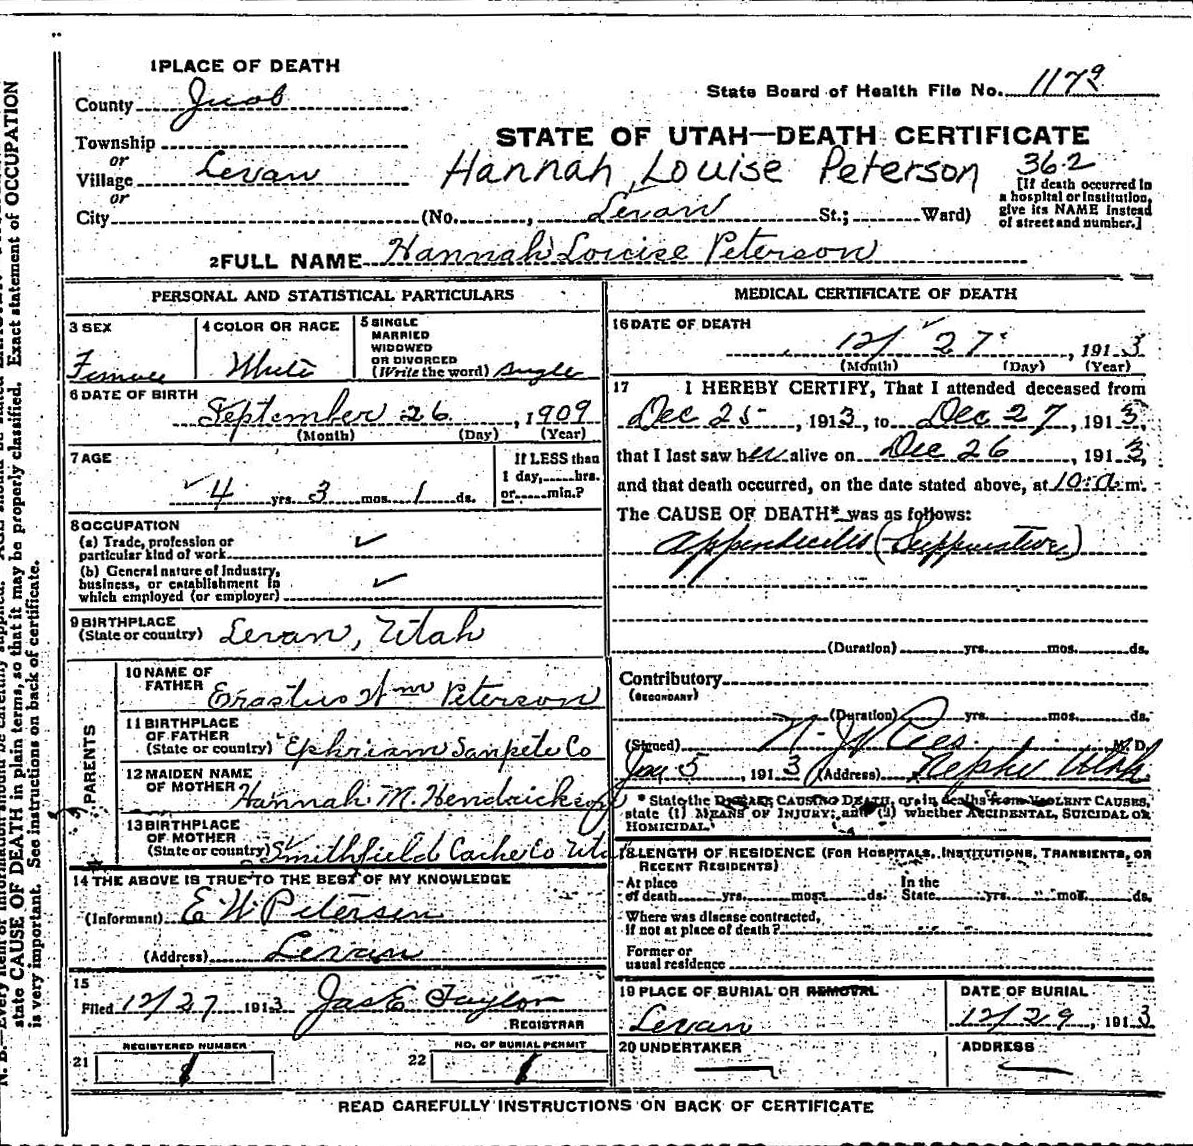 1 PLACE OF DEATH
County Juab
State Board of Health File No. 1179
Township
or
Village Levan
or
City (No. , Levan St.; Ward)
STATE OF UTAH—DEATH CERTIFICATE
Hannah Louise Peterson 362
[If death occurred in
a hospital or institution,
give its NAME instead
of street and number.]
2 FULL NAME Hannah Louise Peterson
PERSONAL AND STATISTICAL PARTICULARS
3 SEX
Female
4 COLOR OR RACE
White
5 SINGLE
MARRIED
WIDOWED
OR DIVORCED
(Write the word) Single
6 DATE OF BIRTH
September 26, 1909
(Month) (Day) (Year)
7 AGE
4 yrs. 3 mos. 1 ds.
If LESS than
1 day, hrs.
or min.?
8 OCCUPATION
(a) Trade, profession or
particular kind of work ✓
(b) General nature of industry,
business, or establishment in
which employed (or employer) ✓
9 BIRTHPLACE
(State or country) Levan, Utah
PARENTS
10 NAME OF
FATHER Erastus Wm Peterson
11 BIRTHPLACE
OF FATHER
(State or country) Ephriam Sanpete Co
12 MAIDEN NAME
OF MOTHER Hannah M. Hendrickson
13 BIRTHPLACE
OF MOTHER
(State or country) Smithfield Cache Co Utah
14 THE ABOVE IS TRUE TO THE BEST OF MY KNOWLEDGE
(Informant) E W Petersen
(Address) Levan
15
Filed 12/27 1913 Jas E Taylor
REGISTRAR
21 REGISTERED NUMBER
8
22 NO. OF BURIAL PERMIT
8
MEDICAL CERTIFICATE OF DEATH
16 DATE OF DEATH
12/ 27, 1913
(Month) (Day) (Year)
17 I HEREBY CERTIFY, That I attended deceased from
Dec 25, 1913, to Dec 27, 1913,
that I last saw her alive on Dec 26, 1913,
and that death occurred, on the date stated above, at 10 a m.
The CAUSE OF DEATH* was as follows:
Appendicitis (Suppurative)
(Duration) yrs. mos. ds.
Contributory
(SECONDARY)
(Duration) yrs. mos. ds.
(Signed) Rees M. D.
Jan 5, 1913 (Address) Nephi Utah
* State the DISEASE CAUSING DEATH, or, in deaths from VIOLENT CAUSES,
state (1) MEANS OF INJURY; and (2) whether ACCIDENTAL, SUICIDAL OR
HOMICIDAL.
18 LENGTH OF RESIDENCE (FOR HOSPITALS, INSTITUTIONS, TRANSIENTS, OR
RECENT RESIDENTS)
At place
of death yrs. mos. ds.
In the
State yrs. mos. ds.
Where was disease contracted,
if not at place of death?
Former or
usual residence
19 PLACE OF BURIAL OR REMOVAL
Levan
DATE OF BURIAL
12/29, 1913
20 UNDERTAKER
ADDRESS
READ CAREFULLY INSTRUCTIONS ON BACK OF CERTIFICATE
state CAUSE OF DEATH in plain terms, so that it may be properly classified. Exact statement of OCCUPATION
is very important. See instructions on back of certificate.